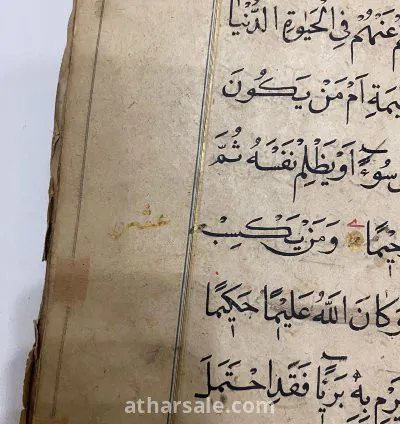 عَنْهُمْ فِي الْحَيٰوةِ الدُّنْيَا
يٰمَةِ اَمْ مَنْ يَكُونُ
سُوءًا اَوْ يَظْلِمْ نَفْسَهُ ثُمَّ
حِيمًا وَمَنْ يَكْسِبْ
وَكَانَ اللّٰهُ عَلِيمًا حَكِيمًا
يَرْمِ بِهِ بَرِيًّا فَقَدِ احْتَمَلَ
atharsale.com